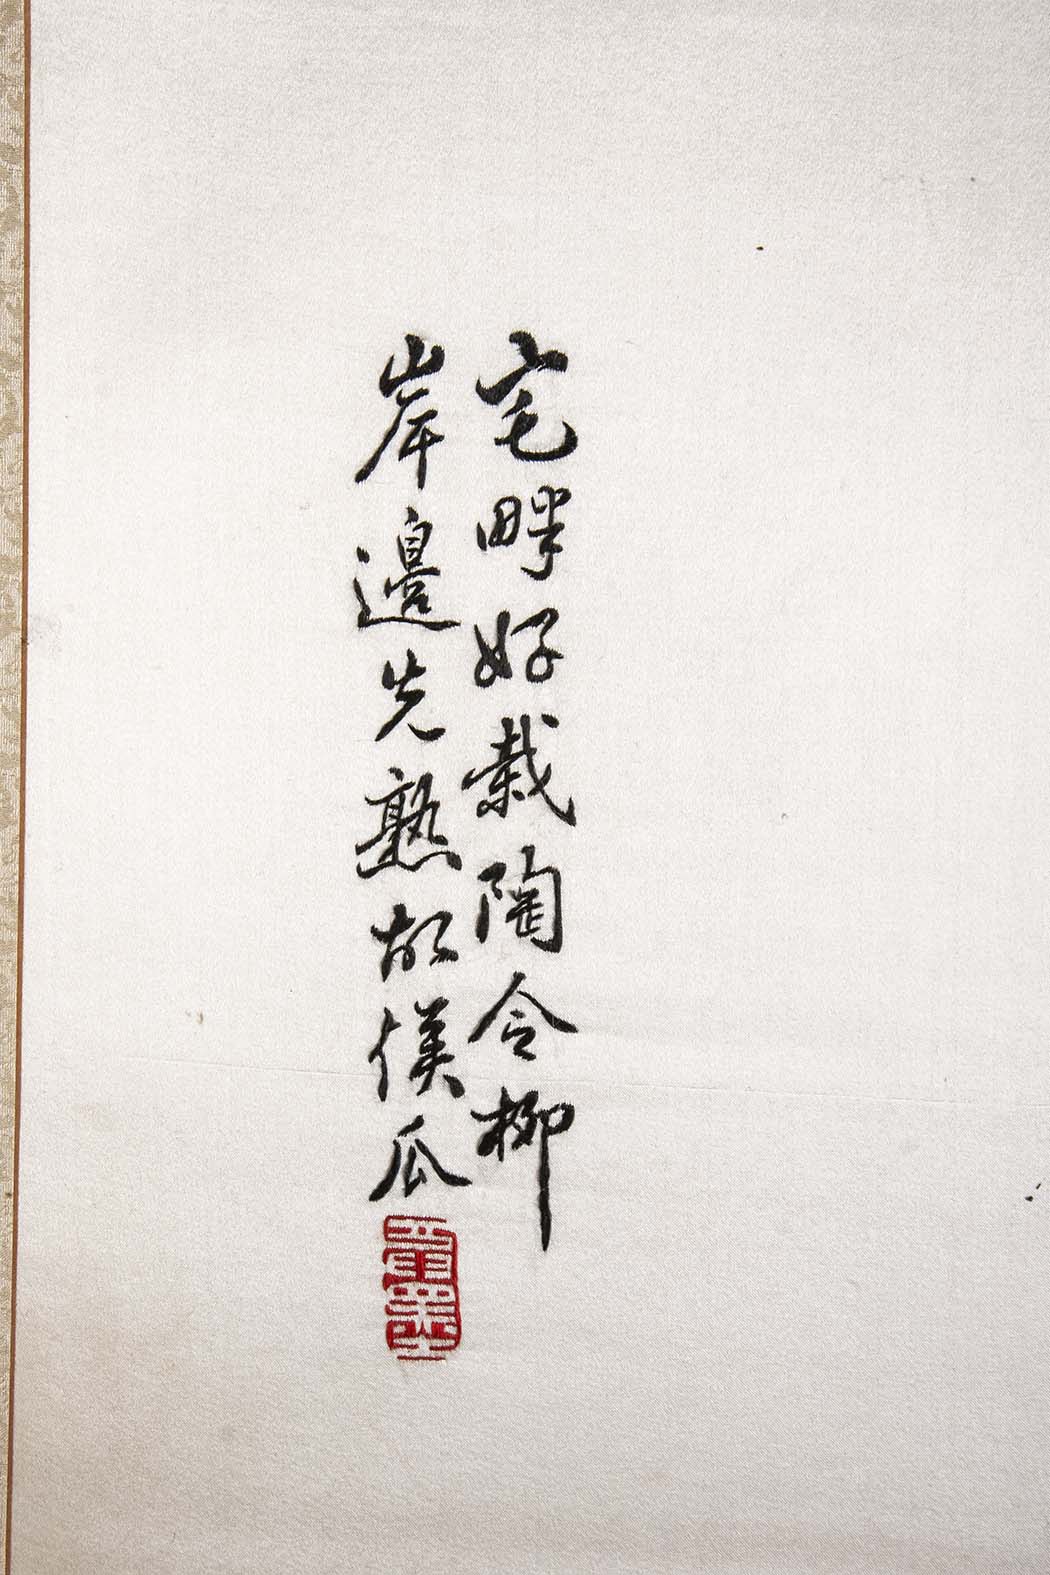 宅畔好栽陶令柳
岸邊先熟故侯瓜